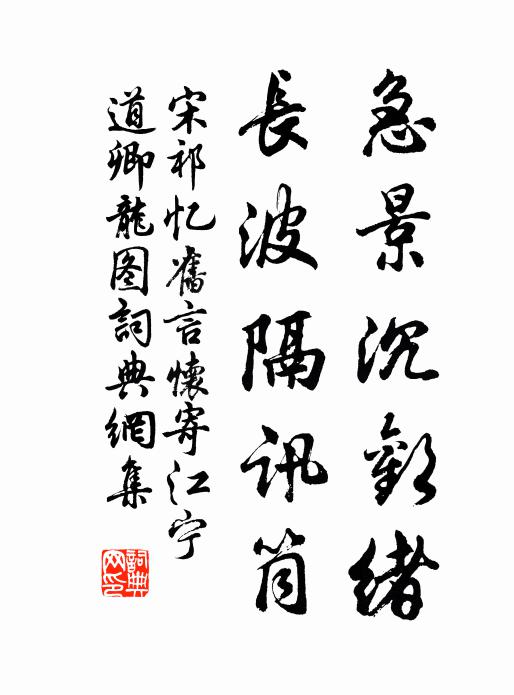 急景沉歡緒
長波隔訊筒
宋祁忆舊言懷寄江宁
道卿龍图詞典網集
詞典网印